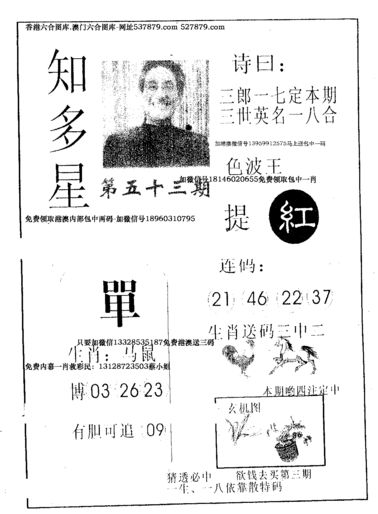 香港六合图库.澳门六合图库-网址537879.com 527879.com
知多星
诗曰：
三郎一七定本期
三世英名一八合
加港澳微信号13959912575马上送包中一码
色波王
第五十三期
加微信号18146020655免费领取包中一肖
提 紅
免费领取港澳内部包中两码-加微信号18960310795
连码：
單
21 46 22 37
生肖送码三中二
只要加微信13328535187免费港澳送三码
生肖：马鼠
免费内幕一肖救彩民：13128723503蔡小姐
博 03 26 23
本期哟四注定中
玄机图
有胆可追 09
猪透必中 欲钱去买第三期
一生、一八依靠散特码